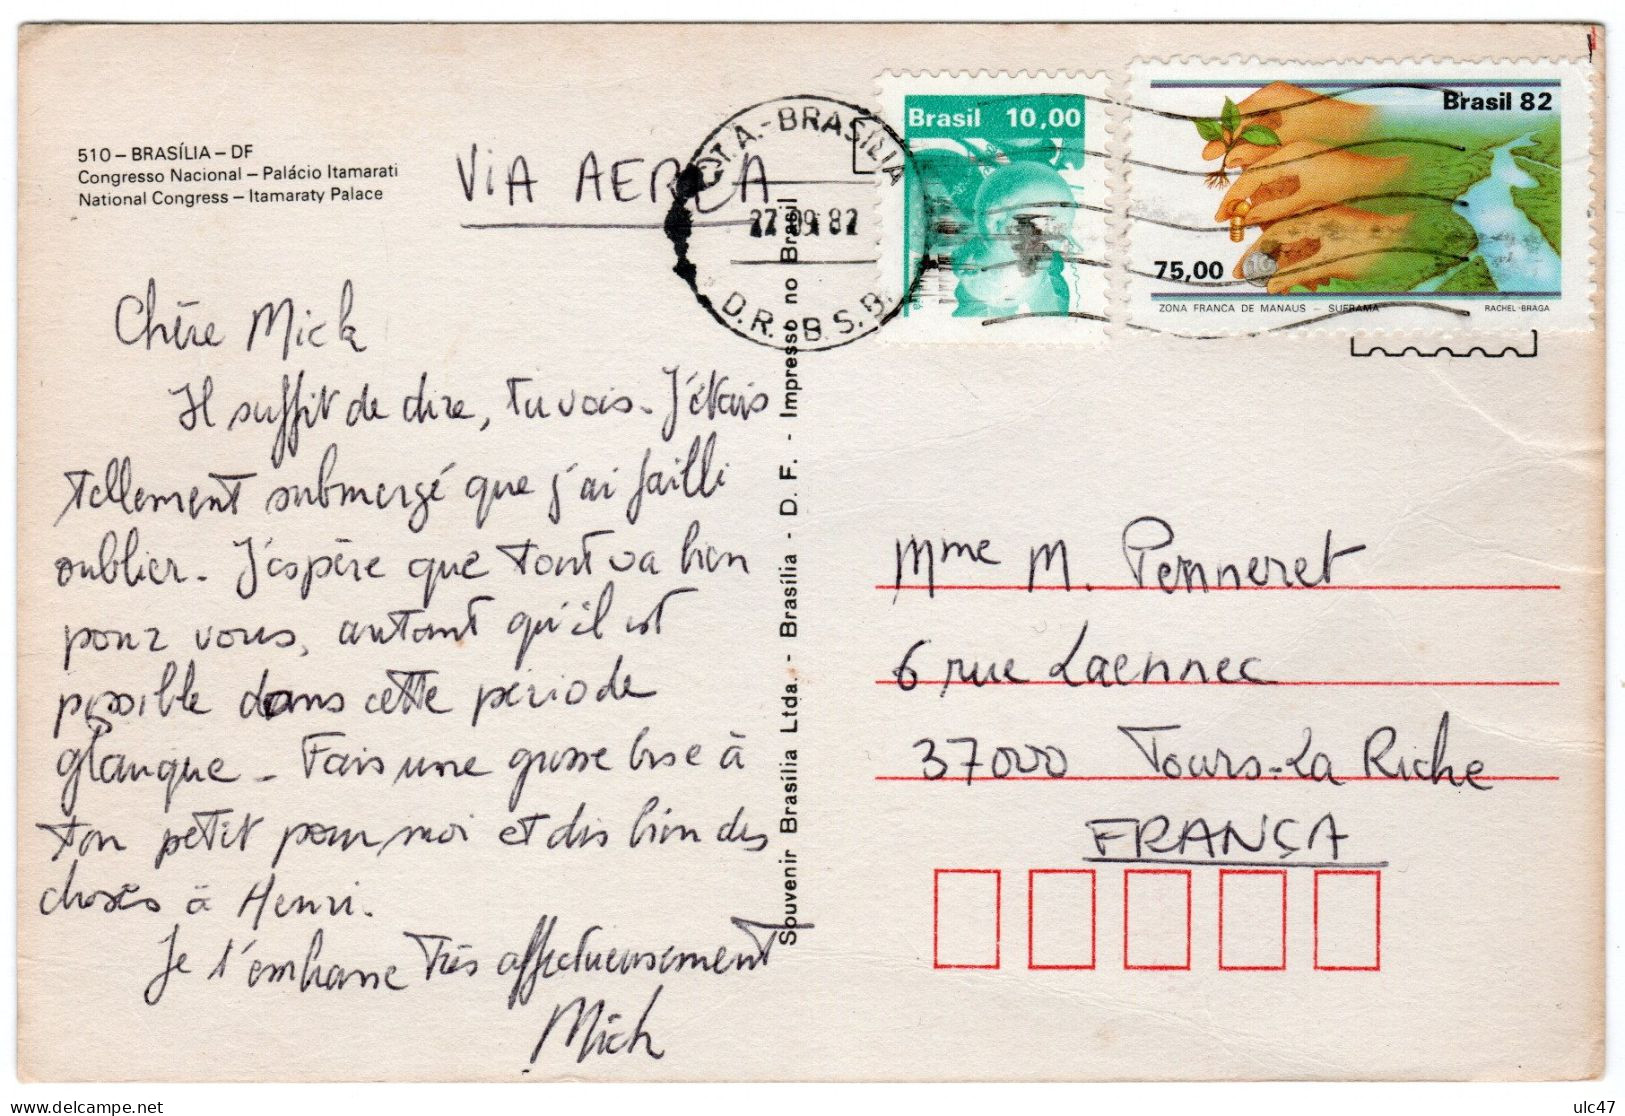 510 – BRASÍLIA – DF
Congresso Nacional – Palácio Itamarati
National Congress – Itamaraty Palace
ViA AEREA
BRASILIA
D.R. B.S.B.
Brasil 10,00
Brasil 82
75,00
ZONA FRANCA DE MANAUS – SUFRAMA
RACHEL BRAGA
Chère Mick
Il suffit de dire, tu vois. J'étais
tellement submergé que j'ai failli
oublier. J'espère que tout va bien
pour vous, autant qu'il est
possible dans cette période
glauque. Fais une grosse bise à
ton petit pour moi et dis bien des
choses à Henri.
Je t'embrasse très affectueusement
Mich
Souvenir Brasília Ltda. - Brasília - D. F. - Impresso no Brasil
Mme M. Penneret
6 rue Laennec
37000 Tours-La Riche
FRANÇA
ulc47